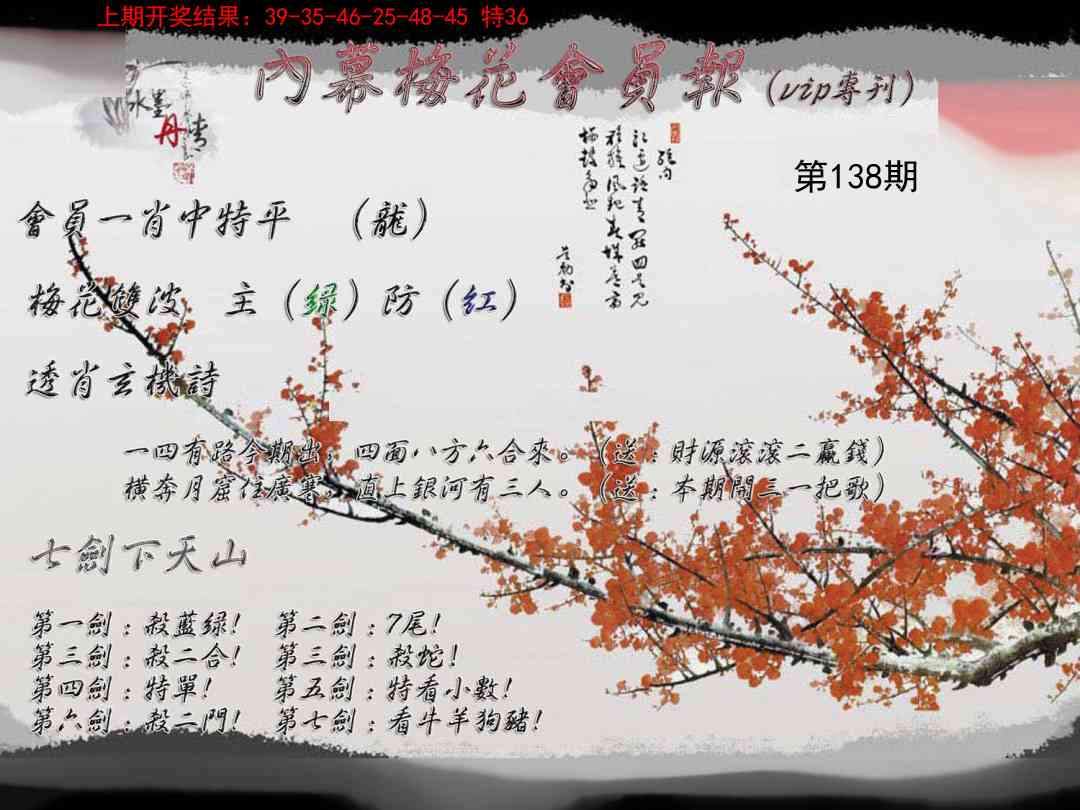 上期开奖结果：39-35-46-25-48-45 特36
內幕梅花會員報（vip專刊）
水墨
丹青
第138期
會員一肖中特平 （龍）
梅花雙波 主（綠）防（紅）
透肖玄機詩
一四有路今期出，四面八方六合來。（送：財源滾滾二贏錢）
橫奔月窟住廣寒，直上銀河有三人。（送：本期開三一把歌）
七劍下天山
第一劍：殺藍绿！ 第二劍：7尾！
第三劍：殺二合！ 第三劍：殺蛇！
第四劍：特單！ 第五劍：特看小數！
第六劍：殺二門！ 第七劍：看牛羊狗豬！